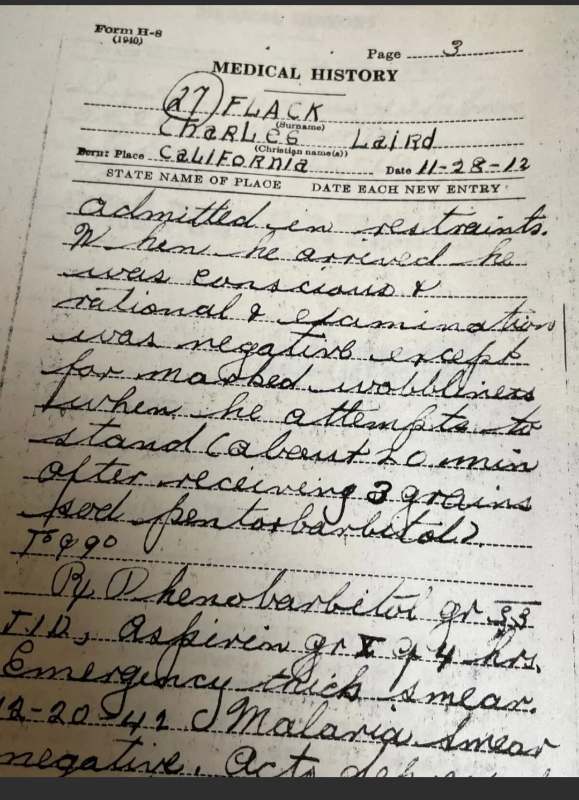 Form H-8
(1940)
Page 3
MEDICAL HISTORY
27 FLACK
(Surname)
CharLES Laird
(Christian name(s))
Born: Place CALIFORNIA Date 11-28-12
STATE NAME OF PLACE DATE EACH NEW ENTRY
admitted in restraints.
When he arrived he
was conscious &
rational & examination
was negative except
for marked wobbliness
when he attempts to
stand (about 20 min
after receiving 3 grains
sod pentobarbitol).
T 99°
Rx Phenobarbitol gr. ss
T.I.D, Aspirin gr X q 4 hrs.
Emergency thick smear.
12-20-42 Malaria smear
negative. Acts